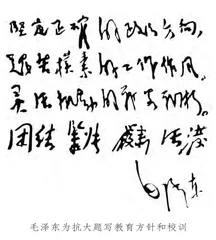 坚定正确的政治方向，
艰苦朴素的工作作风，
灵活机动的战略战术。
团结 紧张 严肃 活泼
毛泽东
毛泽东为抗大题写教育方针和校训